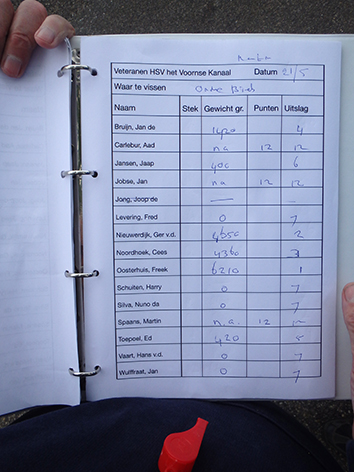 Veteranen HSV het Voornse Kanaal Datum 21/5
Waar te vissen
Naam Stek Gewicht gr. Punten Uitslag
Bruijn, Jan de 1420 4
Carlebur, Aad na 12 12
Jansen, Jaap 400 6
Jobse, Jan na 12 12
Jong, Joop de — –
Levering, Fred 0 7
Nieuwerdijk, Ger v.d. 4650 2
Noordhoek, Cees 4360 3
Oosterhuis, Freek 6210 1
Schulten, Harry 0 7
Silva, Nuno da 0 7
Spaans, Martin n.a. 12 12
Toepoel, Ed 420 5
Vaart, Hans v.d. 0 7
Wulffraat, Jan 0 7